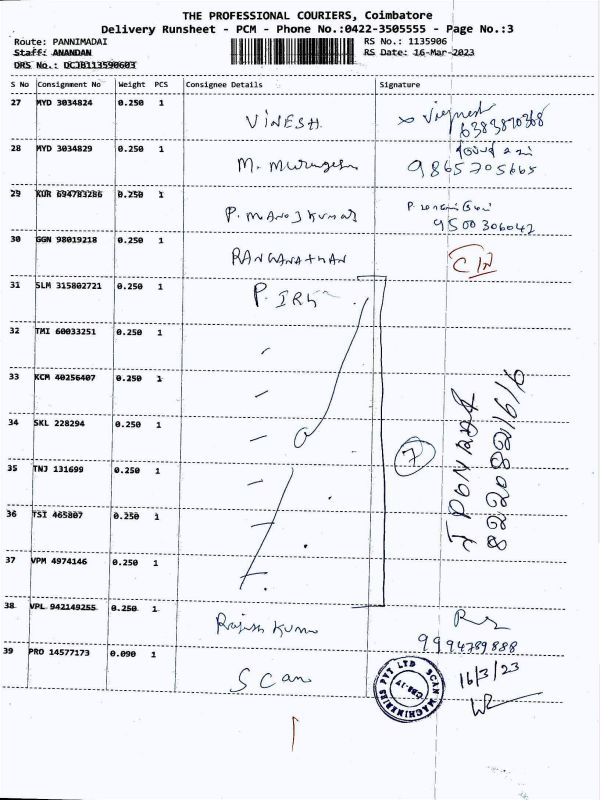 THE PROFESSIONAL COURIERS, Coimbatore
Delivery Runsheet - PCM - Phone No.:0422-3505555 - Page No.:3
Route: PANNIMADAI
RS No.: 1135906
Staff: ANANDAN
RS Date: 16-Mar-2023
DRS No.: DCJB113590603
S No Consignment No Weight PCS Consignee Details Signature
27 MYD 3034824 0.250 1 VINESH
6383870368
28 MYD 3034829 0.250 1 M. Murugesh
9865705665
29 KUR 694783286 0.250 1 P. MANOJ KUMAR
9500306042
30 GGN 98019218 0.250 1 RANGANATHAN
31 SLM 315802721 0.250 1 P.
32 TMI 60033251 0.250 1
33 KCM 40256407 0.250 1
34 SKL 228294 0.250 1
35 TNJ 131699 0.250 1
36 TSI 465807 0.250 1
37 VPM 4974146 0.250 1
7
8220821616
38 VPL 942149255 0.250 1 Rajesh Kumar
9994789888
39 PRO 14577173 0.090 1 Scan
SCAN MACHINERIES PVT LTD
CBE-17
16/3/23